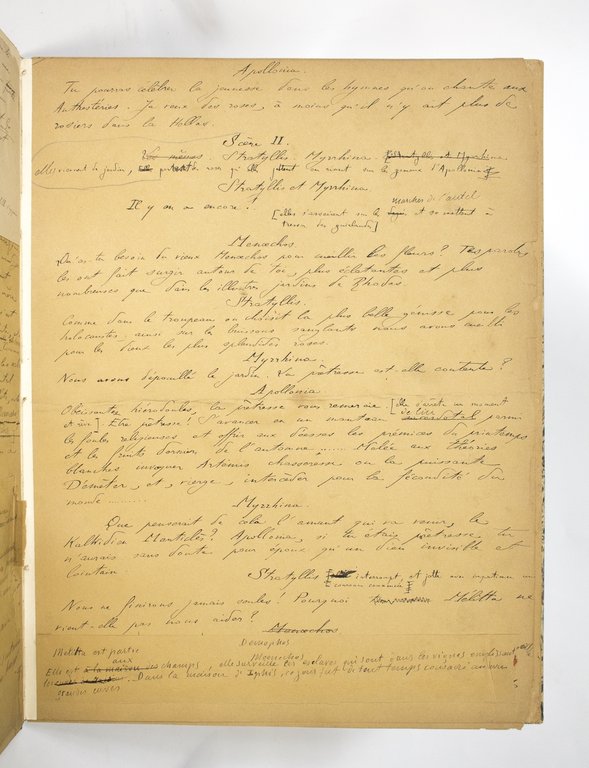 Apollonia.
Tu pourras célébrer la jeunesse dans les hymnes qu'on chante aux
Anthestéries. Je veux des roses, à moins qu'il n'y ait plus de
rosiers dans la Hellas.
Scène II.
Stratyllis. Myrrhina. Stratyllis et Myrrhina
elles viennent du jardin, sur le genoux d'Apollonia
Stratyllis et Myrrhina
Il y en a encore!
marches de l'autel
[elles s'asseoient sur le et se mettent à
tresser des guirlandes]
Menechos
Qu'as-tu besoin du vieux Menechos pour cueillir les fleurs? Tes paroles
les ont fait surgir autour de toi, plus éclatantes et plus
nombreuses que dans les illustres jardins de Rhodes
Stratyllis.
Comme dans le troupeau on choisit la plus belle genisse pour les
holocaustes, ainsi sur les buissons sanglants nous avons cueilli
pour les dieux les plus splendides roses.
Myrrhina.
Nous avons dépouillé le jardin. La prêtresse est-elle contente?
Apollonia
Obéissantes hiérodoules, la prêtresse vous remercie [elle s'arrête un moment
et rit] Etre prêtresse! S'avancer en un manteau de lin sacerdotal parmi
les foules religieuses et offrir aux déesses les prémices du printemps
et les fruits derniers de l'automne ...... Mêlée aux théories
blanches invoquer Artémis chasseresse ou la puissante
Démèter, et, vierge, intercéder pour la fécondité du
monde ........
Myrrhina.
Que penserait de cela l'amant qui va venir, le
Kalkidien Mantiklès? Apollonia, si tu étais prêtresse, tu
n'aurais sans doute pour époux qu'un dieu invisible et
lointain
Stratyllis interrompt, et jette avec impatience une
couronne commencée]
Nous ne finirons jamais seules! Pourquoi Melitta ne
vient-elle pas nous aider?
Menechos
Demophos
Melitta est partie Menechos
Elle est à la maison aux champs, elle surveille les esclaves qui sont dans les vignes
Dans la maison d' ce jour fait de tout temps consacré au vin
grandes cuves